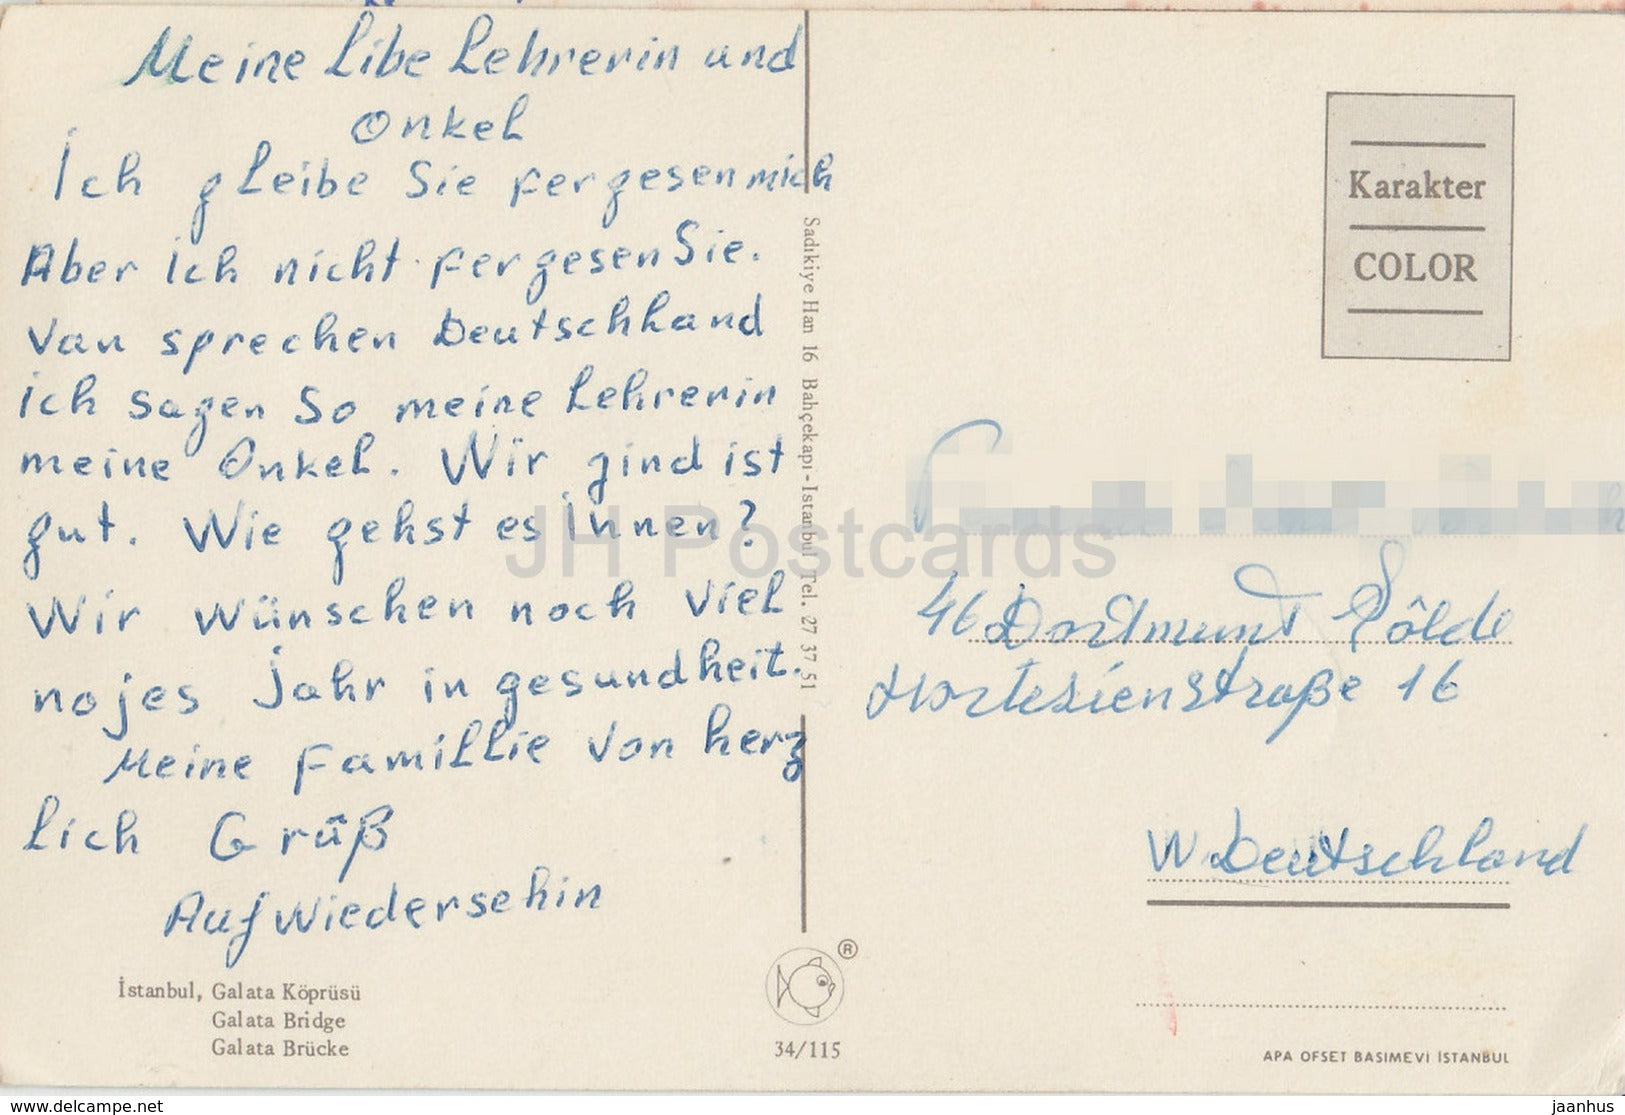 Meine Libe Lehrerin und
Onkel
Ich gleibe Sie fergesen mich
Aber ich nicht fergesen Sie.
Van sprechen Deutschland
ich sagen so meine Lehrerin
meine Onkel. Wir zind ist
gut. Wie gehst es Ihnen?
Wir wünschen noch viel
nojes Jahr in gesundheit.
Meine Famillie von herz
lich Grüß
Auf wiedersehin
İstanbul, Galata Köprüsü
Galata Bridge
Galata Brücke
Sadıkiye Han 16 Bahçekapı-Istanbul Tel. 27 37 51
34/115
®
Karakter
COLOR
46 Dortmund Sölde
straße 16
W. Deutschland
APA OFSET BASIMEVİ İSTANBUL
JH Postcards
www.delcampe.net
jaanhus